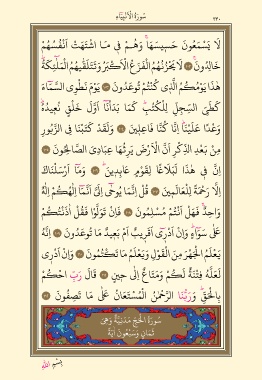 سُورَةُ الْأَنْبِيَاءِ
٣٣٠
لَا يَسْمَعُونَ حَسِيسَهَا وَهُمْ فِي مَا اشْتَهَتْ أَنْفُسُهُمْ
خَالِدُونَ ۝ لَا يَحْزُنُهُمُ الْفَزَعُ الْأَكْبَرُ وَتَتَلَقَّيهُمُ الْمَلٰٓئِكَةُ
هٰذَا يَوْمُكُمُ الَّذِي كُنْتُمْ تُوعَدُونَ ۝ يَوْمَ نَطْوِي السَّمَٓاءَ
كَطَيِّ السِّجِلِّ لِلْكُتُبِ كَمَا بَدَأْنَٓا أَوَّلَ خَلْقٍ نُعِيدُهُ
وَعْدًا عَلَيْنَا إِنَّا كُنَّا فَاعِلِينَ ۝ وَلَقَدْ كَتَبْنَا فِي الزَّبُورِ
مِنْ بَعْدِ الذِّكْرِ أَنَّ الْأَرْضَ يَرِثُهَا عِبَادِيَ الصَّالِحُونَ ۝
إِنَّ فِي هٰذَا لَبَلَاغًا لِقَوْمٍ عَابِدِينَ ۝ وَمَٓا أَرْسَلْنَاكَ
إِلَّا رَحْمَةً لِلْعَالَمِينَ ۝ قُلْ إِنَّمَا يُوحٰٓى إِلَيَّ أَنَّمَٓا إِلٰهُكُمْ إِلٰهٌ
وَاحِدٌ فَهَلْ أَنْتُمْ مُسْلِمُونَ ۝ فَإِنْ تَوَلَّوْا فَقُلْ اٰذَنْتُكُمْ
عَلٰى سَوَٓاءٍ وَإِنْ أَدْرِي أَقَرِيبٌ أَمْ بَعِيدٌ مَا تُوعَدُونَ ۝ إِنَّهُ
يَعْلَمُ الْجَهْرَ مِنَ الْقَوْلِ وَيَعْلَمُ مَا تَكْتُمُونَ ۝ وَإِنْ أَدْرِي
لَعَلَّهُ فِتْنَةٌ لَكُمْ وَمَتَاعٌ إِلٰى حِينٍ ۝ قَالَ رَبِّ احْكُمْ
بِالْحَقِّ وَرَبُّنَا الرَّحْمٰنُ الْمُسْتَعَانُ عَلٰى مَا تَصِفُونَ ۝
سُورَةُ الْحَجِّ مَدَنِيَّةٌ وَهِيَ
ثَمَانٍ وَسَبْعُونَ اٰيَةً
بِسْمِ اللّٰهِ